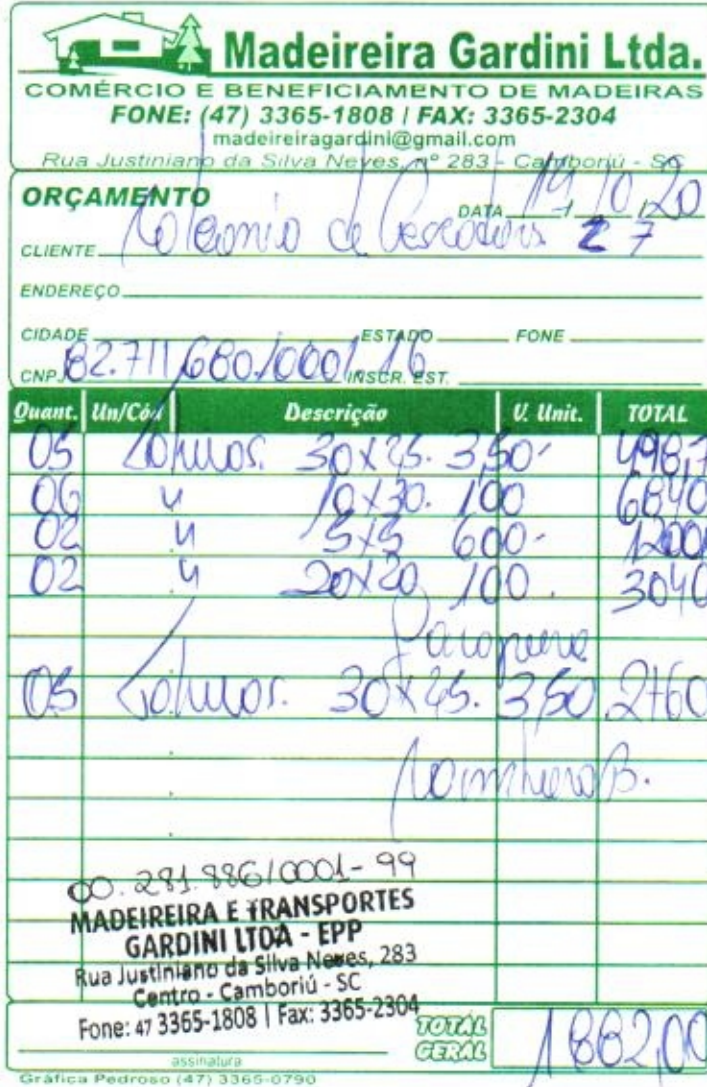 Madeireira Gardini Ltda.
COMÉRCIO E BENEFICIAMENTO DE MADEIRAS
FONE: (47) 3365-1808 / FAX: 3365-2304
madeireiragardini@gmail.com
Rua Justiniano da Silva Neves, nº 283 - Camboriú - SC
ORÇAMENTO DATA 19/10/20
CLIENTE de Z 7
ENDEREÇO
CIDADE ESTADO FONE
CNPJ 82.711.680/0001.16 INSCR. EST.
Quant. Un/Cód Descrição V. Unit. TOTAL
05 30x25. 3,50-
06 " 10x30. 100 6840
02 " 5x5 600- 1200
02 " 20x20 100. 3040
05 30x25. 3,50 2760
00.281.886/0001-99
MADEIREIRA E TRANSPORTES
GARDINI LTDA - EPP
Rua Justiniano da Silva Neves, 283
Centro - Camboriú - SC
Fone: 47 3365-1808 | Fax: 3365-2304
TOTAL GERAL 1882,00
assinatura
Gráfica Pedroso (47) 3365-0790